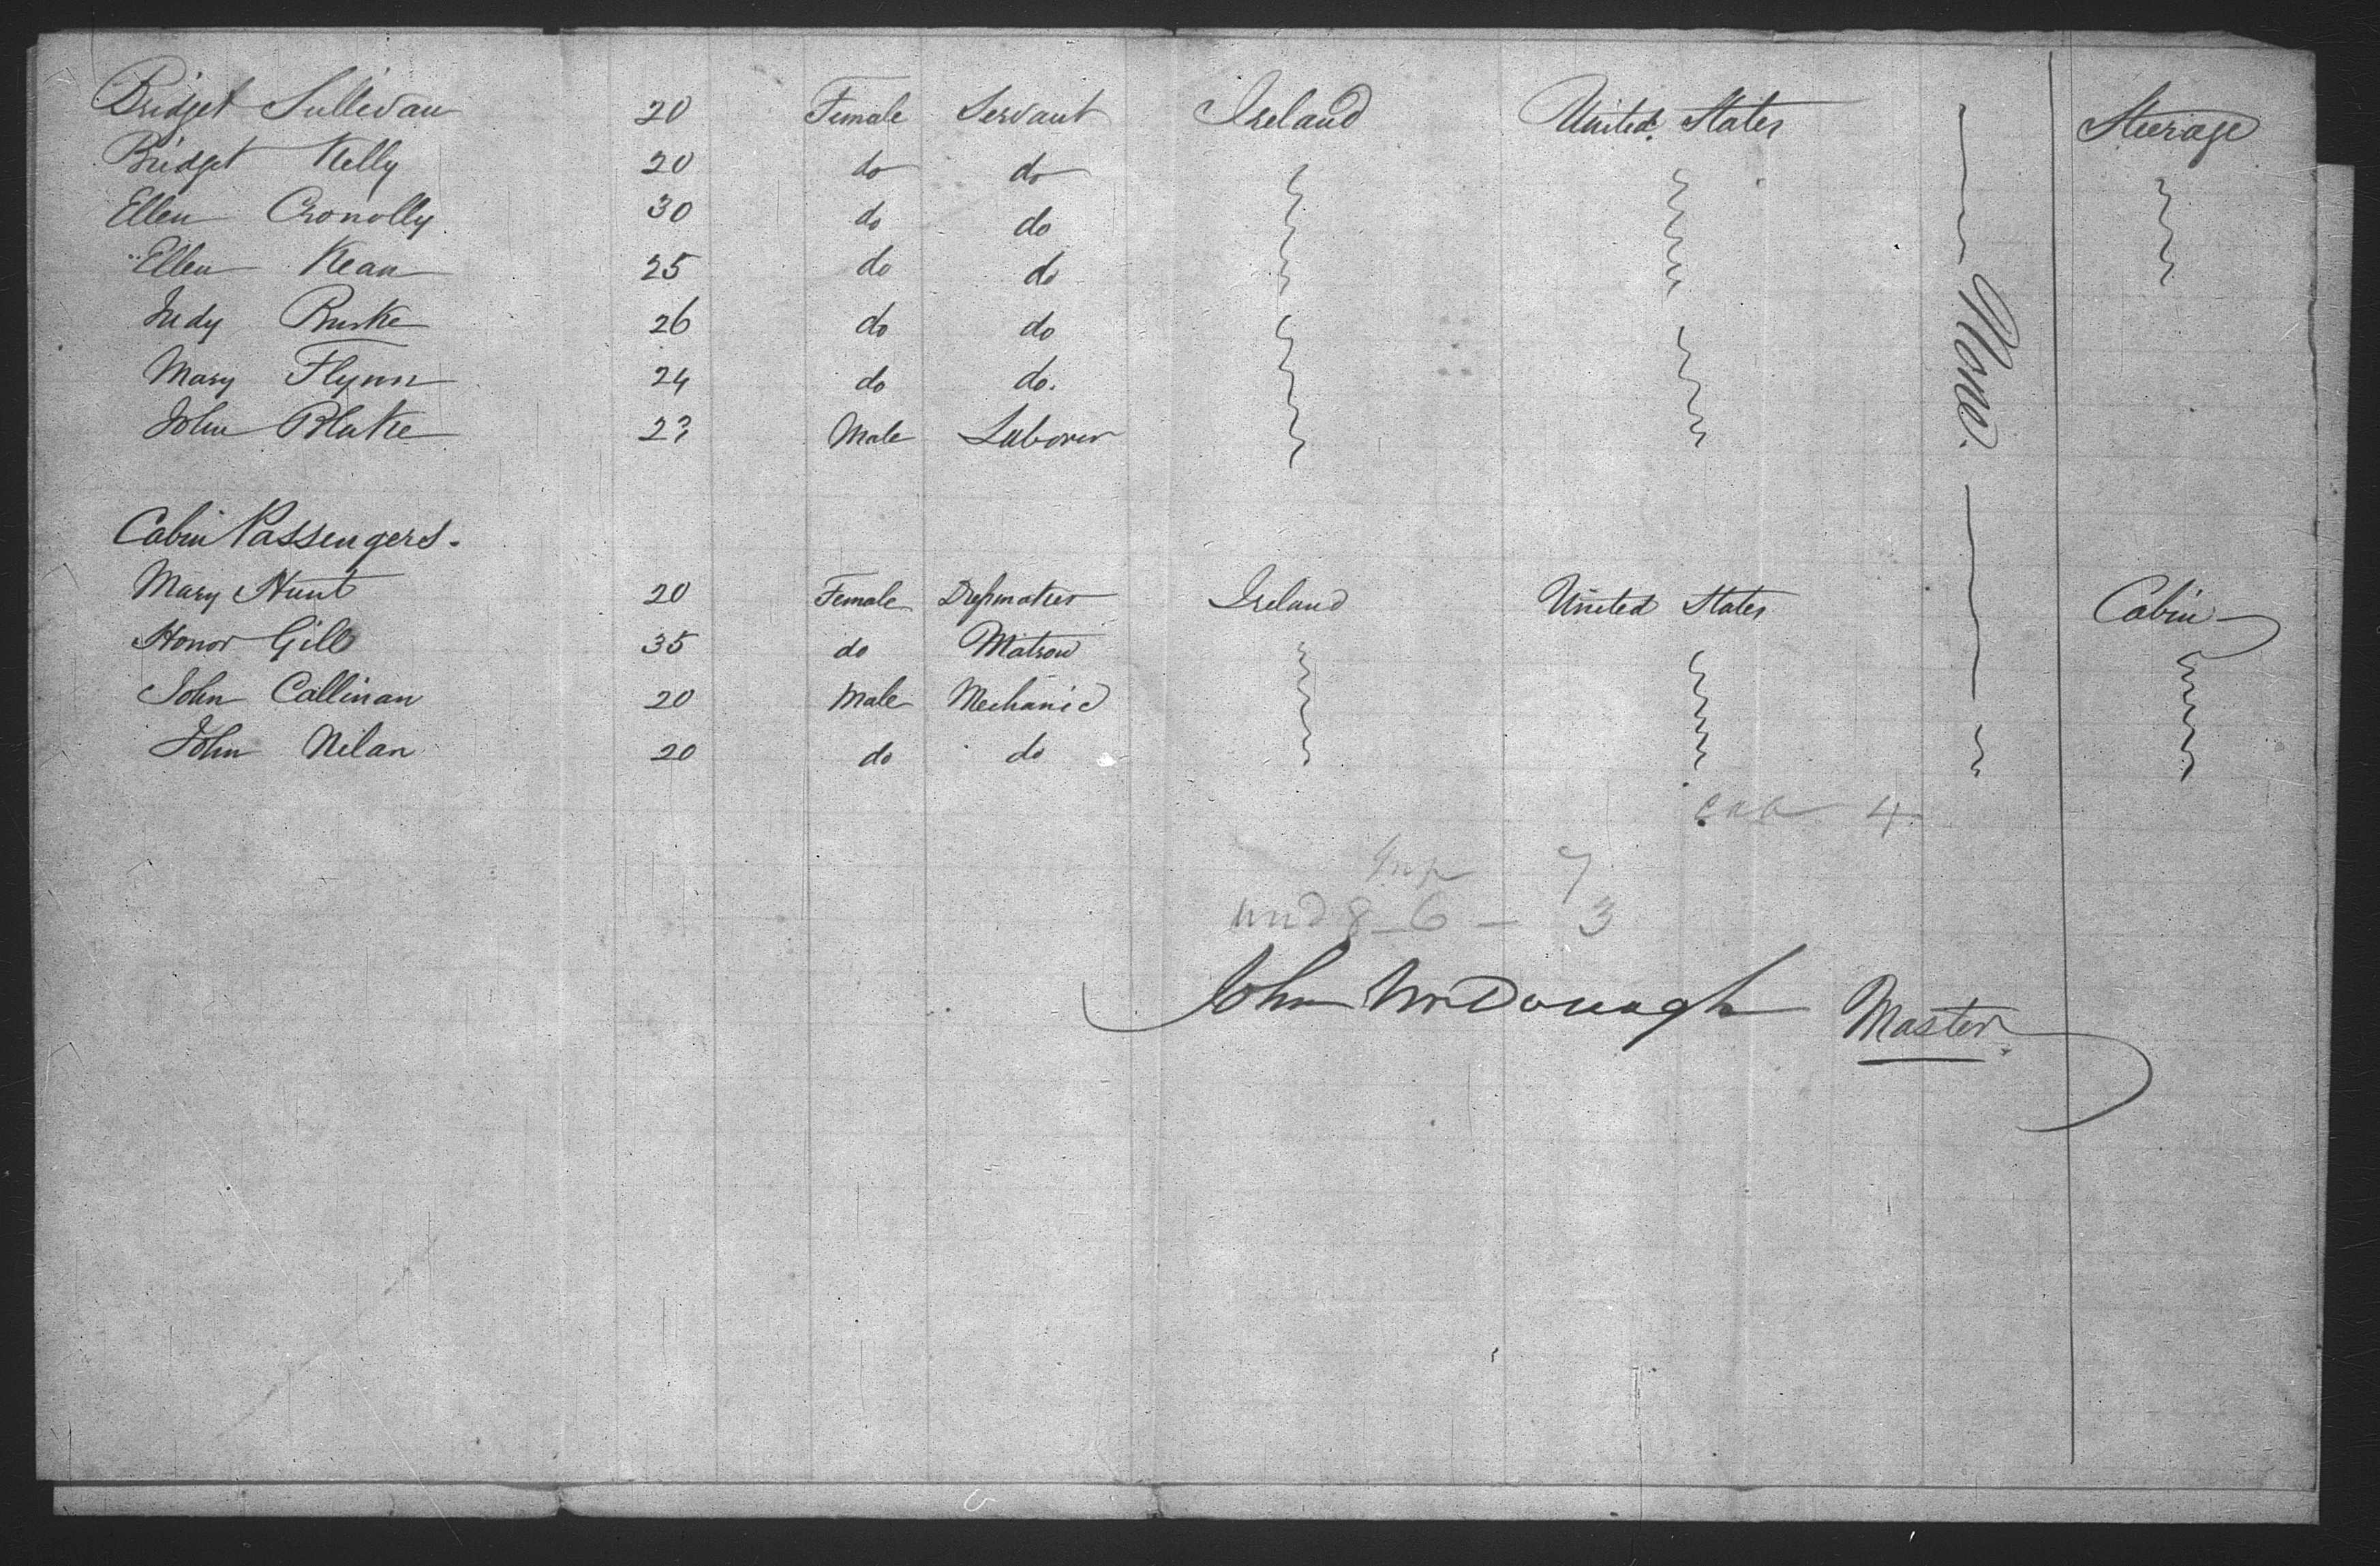 Bridget Sullivan 20 Female Servant Ireland United States Steerage
Bridget Kelly 20 do do
Ellen Cronolly 30 do do
Ellen Kean 25 do do
Judy Burke 26 do do
Mary Flynn 24 do do.
John Blake Male Laborer
None.
Cabin Passengers.
Mary Hunt 20 Female Dressmaker Ireland United States Cabin
Honor Gill 35 do Matron
John Callinan 20 Male Mechanic
John Nilan 20 do do
cab 4
7
und 8 - 6 - 3
John McDonagh Master